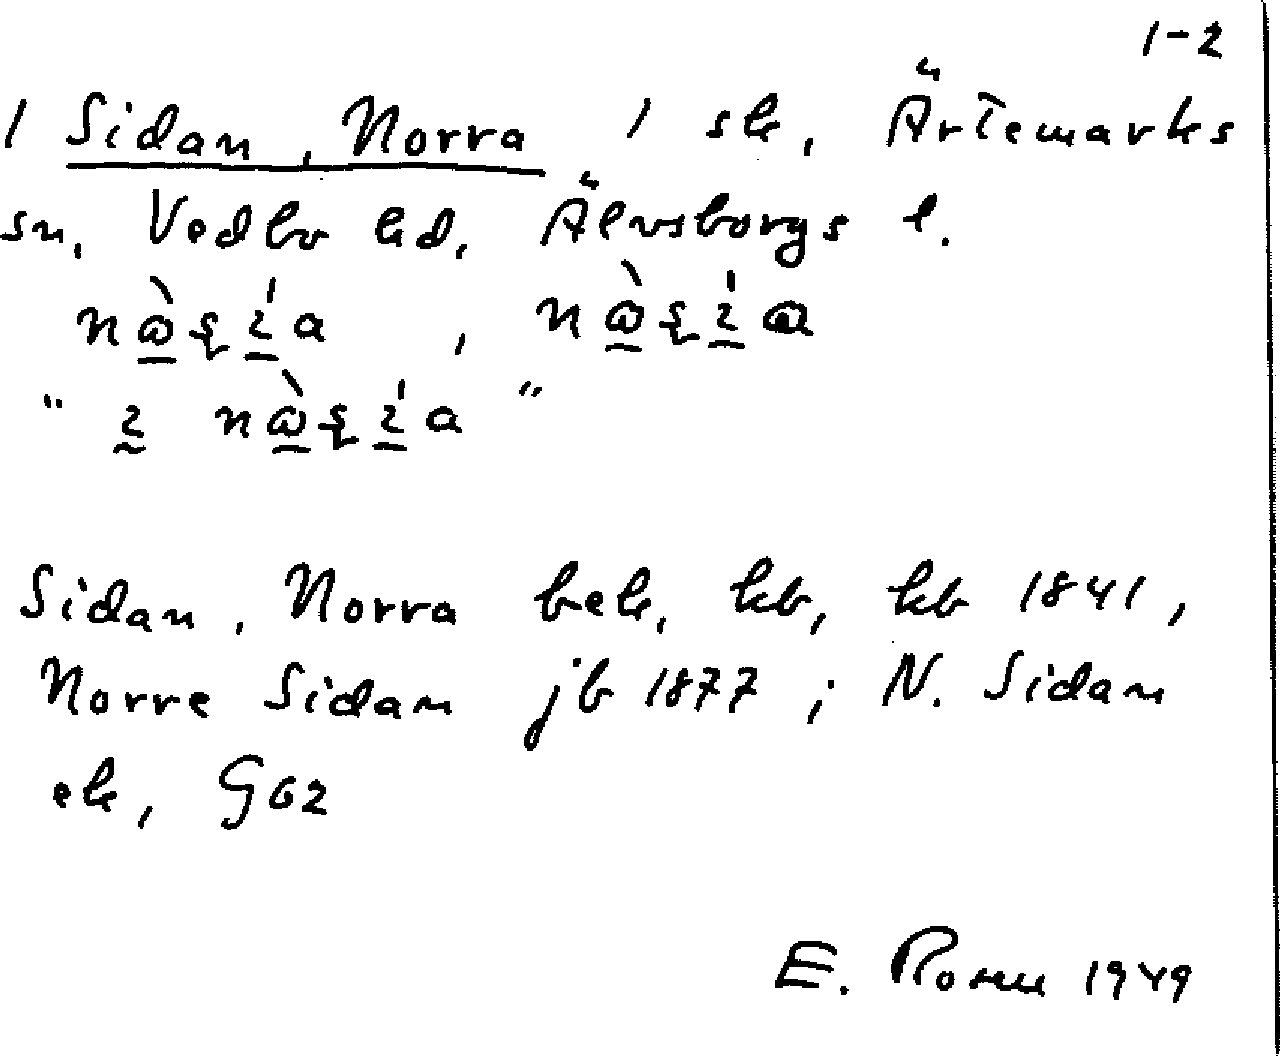 1-2
1 Sidan, Norra 1 sk, Ärtemarks
sn, Vedbo hd, Älvsborgs l.
Sidan, Norra bek, kb, kb 1841,
Norre Sidan jb 1877; N. Sidan
ek, G62
E. 1949